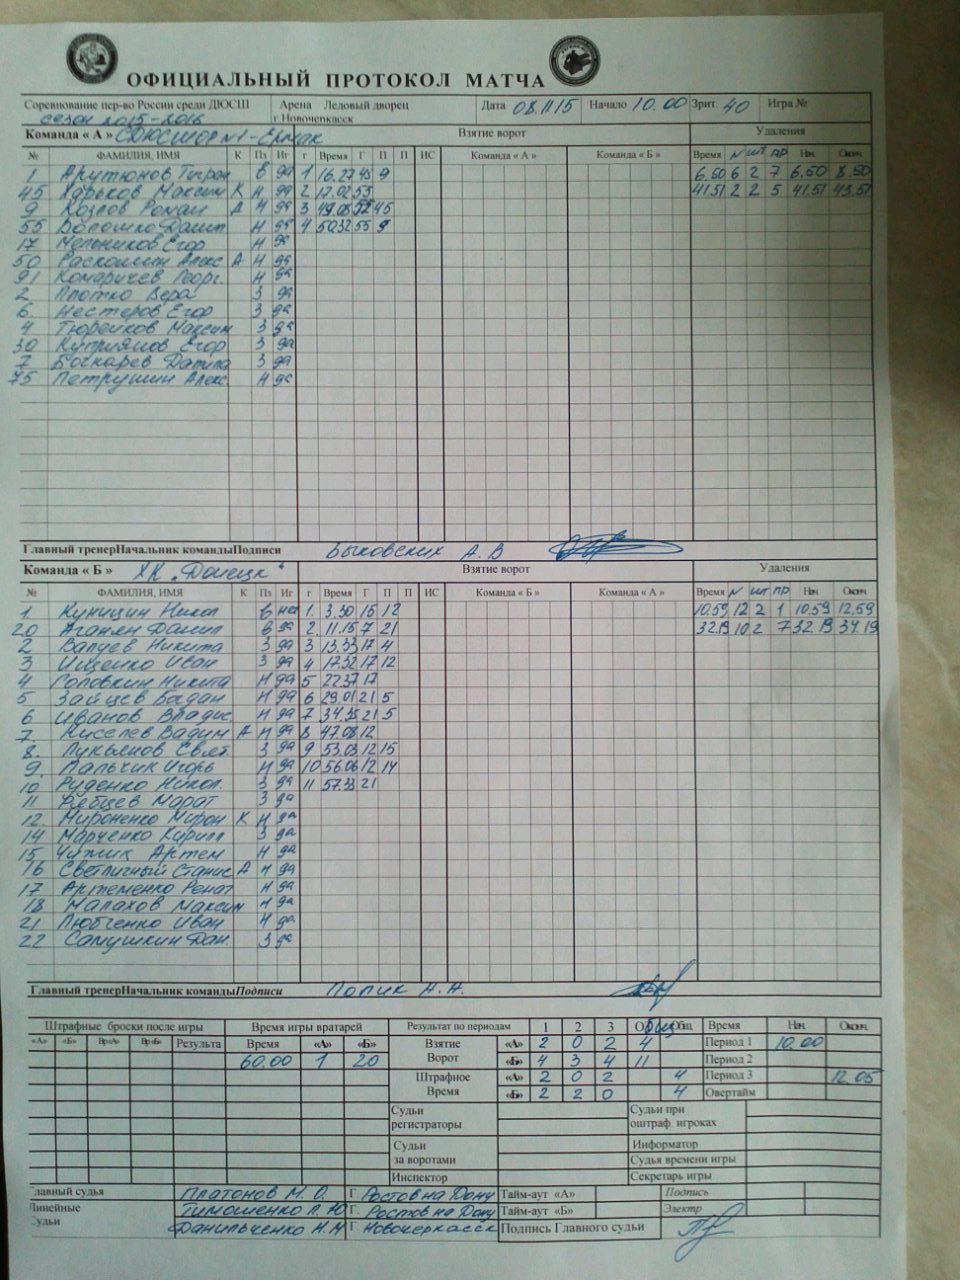 ОФИЦИАЛЬНЫЙ ПРОТОКОЛ МАТЧА
Соревнование пер-во России среди ДЮСШ Арена Ледовый дворец Дата 08.11.15 Начало 10.00 Зрит. 40 Игра №
сезон 2015-2016 г Новочепкасск
Команда « А » СДЮСШОР №1 - Ермак Взятие ворот Удаления
№ ФАМИЛИЯ, ИМЯ К Пз Иг г Время Г П П ИС Команда« А » Команда« Б » Время N шт пр Нач. Оконч.
1 Арутюнов Тигран в да 1 16.27 45 9 6.50 6 2 7 6.50 8.50
45 Харьков Максим К н да 2 17.02 55 41.51 2 2 5 41.51 43.51
9 Козлов Роман А н да 3 49.08 52 45
55 Волошко Данил н да 4 50.32 55 9
17 Мельников Егор н да
50 Алекс А н да
91 Комаричев Георг. н да
2 Плотко Вера з да
6. Нестеров Егор з да
4 Максим з да
30 Куприянов Егор з да
7 Бочкарев з да
75 Петрушин Алекс н да
Главный тренерНачальник командыПодписи Быковских А. В
Команда « Б » ХК „Донецк“ Взятие ворот Удаления
№ ФАМИЛИЯ, ИМЯ К Пз Иг г Время Г П П ИС Команда« Б » Команда« А » Время N шт ПР Нач. Оконч.
1 Куницин Никол в 1. 3.30 15 12 10.59 12 2 1 10.59 12.59
20 Аганян Данил в да 2. 11.15 7 21 32.19 10 2 7 32.19 34.19
2 Валуев Никита з да 3 13.33 17 4
3 Ищенко Иван з да 4 17.32 17 12
4 Головкин Никита н да 5 22.37 17
5 Зайцев Богдан н да 6 29.01 21 5
6 Иванов Владис. н да 7 34.35 21 5
7. Киселев Вадим А н да 8 47.08 12
8. Лукьянов Свят з да 9 53.03 12 15
9. Пальчик Игорь н да 10 56.06 12 14
10 Руденко Никол. з да 11 57.33 21
11 Рябцев Марат з да
12. Мироненко Мирон К н да
14 Марченко Кирилл з да
15 Чижик Артем н да
16 Светличный Станис А н да
17 Артеменко Ренат н да
18 Малахов Максим н да
21 Любченко Иван н да
22 Самушкин Дан. з да
Главный тренерНачальник командыПодписи Попик Н.Н.
Штрафные броски после игры Время игры вратарей Результат по периодам 1 2 3 Общ Общ Время Нач. Оконч.
«А» «Б» Вр«А» Вр«Б» Результа Время «А» «Б» Взятие Ворот «А» 2 0 2 4 Период 1 10.00
60.00 1 20 «Б» 4 3 4 11 Период 2
Штрафное Время «А» 2 0 2 4 Период 3 12.05
«Б» 2 2 0 4 Овертайм
Судьи регистраторы Судьи при оштраф. игроках
Судьи за воротами Информатор
Судья времени игры
Инспектор Секретарь игры
лавный судья Платонов М. О. Г. Ростов на Дону Тайм-аут «А» Подпись
Линейные Тимошенко Л. Ю Г. Ростов на Дону Тайм-аут «Б» Электр
Судьи Данильченко Н.М Г Новочеркасск Подпись Главного судьи